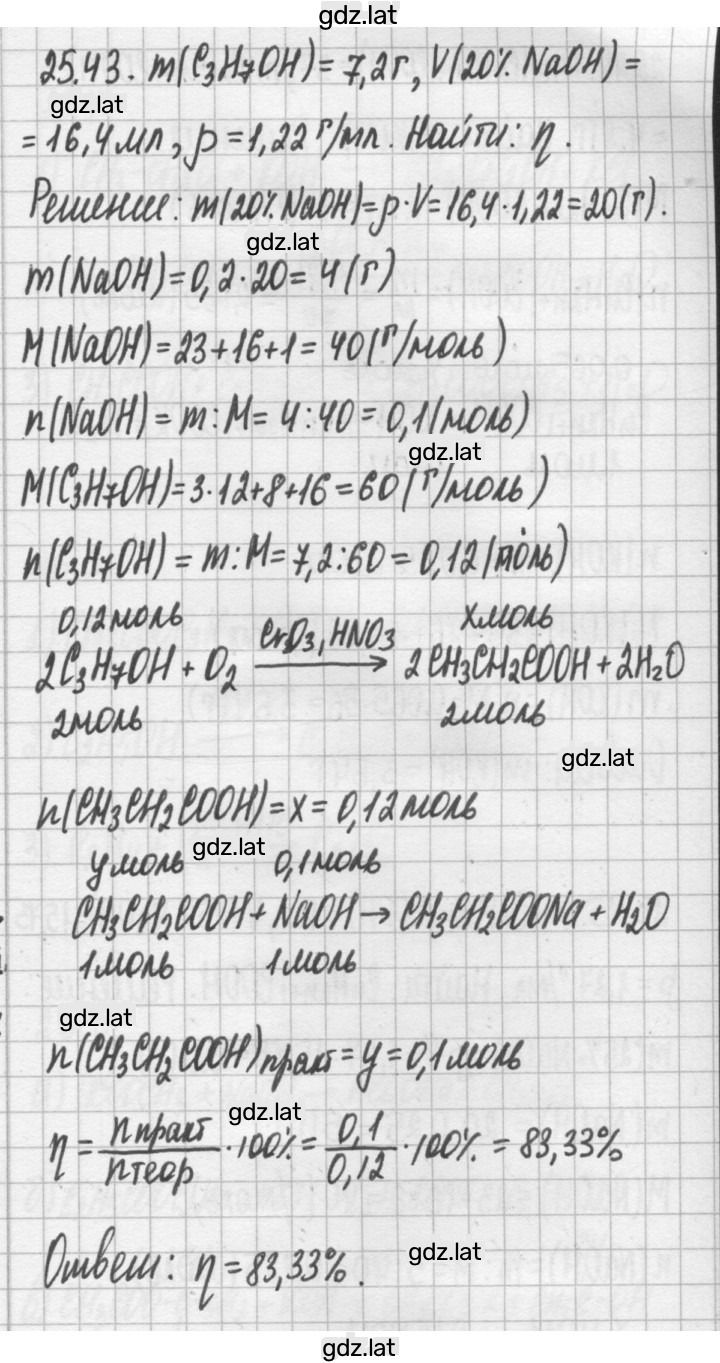 gdz.lat
25.43. m(C₃H₇OH) = 7,2 г, V(20% NaOH) =
gdz.lat
= 16,4 мл, ρ = 1,22 г/мл. Найти: η.
Решение: m(20% NaOH) = ρ·V = 16,4·1,22 = 20(г).
gdz.lat
m(NaOH) = 0,2·20 = 4(г)
M(NaOH) = 23+16+1 = 40(г/моль)
n(NaOH) = m:M = 4:40 = 0,1(моль)
gdz.lat
M(C₃H₇OH) = 3·12+8+16 = 60(г/моль)
n(C₃H₇OH) = m:M = 7,2:60 = 0,12(моль)
0,12 моль x моль
CrO₃, HNO₃
2C₃H₇OH + O₂ → 2CH₃CH₂COOH + 2H₂O
2 моль 2 моль
gdz.lat
n(CH₃CH₂COOH) = x = 0,12 моль
y моль gdz.lat 0,1 моль
CH₃CH₂COOH + NaOH → CH₃CH₂COONa + H₂O
1 моль 1 моль
gdz.lat
n(CH₃CH₂COOH)практ = y = 0,1 моль
gdz.lat
η = nпракт/nтеор · 100% = 0,1/0,12 · 100% = 83,33%
Ответ: η = 83,33%.
gdz.lat
gdz.lat